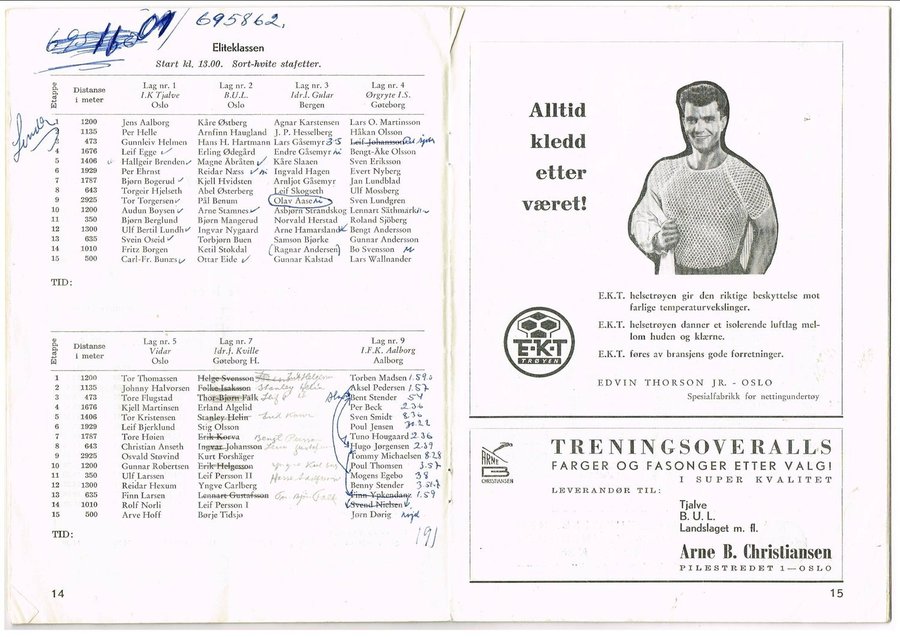 695862.
Eliteklassen
Start kl. 13.00. Sort-hvite stafetter.
Etappe Distanse i meter Lag nr. 1 I.K Tjalve Oslo Lag nr. 2 B.U.L. Oslo Lag nr. 3 Idr.l. Gular Bergen Lag nr. 4 Ørgryte I.S. Gøteborg
1 1200 Jens Aalborg Kåre Østberg Agnar Karstensen Lars O. Martinsson
2 1135 Per Helle Arnfinn Haugland J. P. Hesselberg Håkan Olsson
3 473 Gunnleiv Helmen Hans H. Hartmann Lars Gåsemyr Leif Johansson
4 1676 Leif Egge Erling Ødegård Endre Gåsemyr Bengt-Åke Olsson
5 1406 Hallgeir Brenden Magne Åbråten Kåre Slaaen Sven Eriksson
6 1929 Per Ehrnst Reidar Næss Ingvald Hagen Evert Nyberg
7 1787 Bjørn Bogerud Kjell Hvidsten Arnljot Gåsemyr Jan Lundblad
8 643 Torgeir Hjelseth Abel Østerberg Leif Skogseth Ulf Mossberg
9 2925 Tor Torgersen Pål Benum Olav Aase Sven Lundgren
10 1200 Audun Boysen Arne Stamnes Asbjørn Strandskog Lennart Säthmark
11 350 Bjørn Berglund Bjørn Mangerud Norvald Herstad Roland Sjöberg
12 1300 Ulf Bertil Lundh Ingvar Nygaard Arne Hamarsland Bengt Andersson
13 635 Svein Oseid Torbjørn Buen Samson Bjørke Gunnar Andersson
14 1010 Fritz Borgen Ketil Stokdal (Ragnar Andersen) Bo Svensson
15 500 Carl-Fr. Bunæs Ottar Eide Gunnar Kalstad Lars Wallnander
TID:
Etappe Distanse i meter Lag nr. 5 Vidar Oslo Lag nr. 7 Idr.f. Kville Gøteborg H. Lag nr. 9 I.F.K. Aalborg Aalborg
1 1200 Tor Thomassen Helge Svensson Torben Madsen 1.59.0
2 1135 Johnny Halvorsen Folke Isaksson Stanley Helin Aksel Pedersen 1.57
3 473 Tore Flugstad Thor-Bjørn Falk Bent Stender 54
4 1676 Kjell Martinsen Erland Algelid Per Beck 2.36
5 1406 Tor Kristensen Stanley Helin Sven Smidt 8.36
6 1929 Leif Bjerklund Stig Olsson Poul Jensen
7 1787 Tore Høien Erik Korva Tuno Hougaard 2.36
8 643 Christian Anseth Ingvar Johansson Hugo Jørgensen 2.39
9 2925 Osvald Støvind Kurt Forshäger Tommy Michaelsen 8.28
10 1200 Gunnar Robertsen Erik Helgesson Poul Thomsen 3.57
11 350 Ulf Larssen Leif Persson II Mogens Egebo 38
12 1300 Reidar Hexum Yngve Carlberg Benny Stender
13 635 Finn Larsen Lennart Gustafsson Finn Ypkendanz 1.59
14 1010 Rolf Norli Leif Persson I Svend Nielsen
15 500 Arve Hoff Børje Tidsjø Jørn Dørig
TID:
191
14
Alltid
kledd
etter
været!
E.K.T. helsetrøyen gir den riktige beskyttelse mot
farlige temperaturvekslinger.
E.K.T. helsetrøyen danner et isolerende luftlag mel-
lom huden og klærne.
E.K.T. føres av bransjens gode forretninger.
E·K·T
TRØYEN
EDWIN THORSON JR. - OSLO
Spesialfabrikk for nettingundertøy
ARNE B
CHRISTIANSEN
TRENINGSOVERALLS
FARGER OG FASONGER ETTER VALG!
I SUPER KVALITET
LEVERANDØR TIL:
Tjalve
B. U. L.
Landslaget m. fl.
Arne B. Christiansen
PILESTREDET 1—OSLO
15